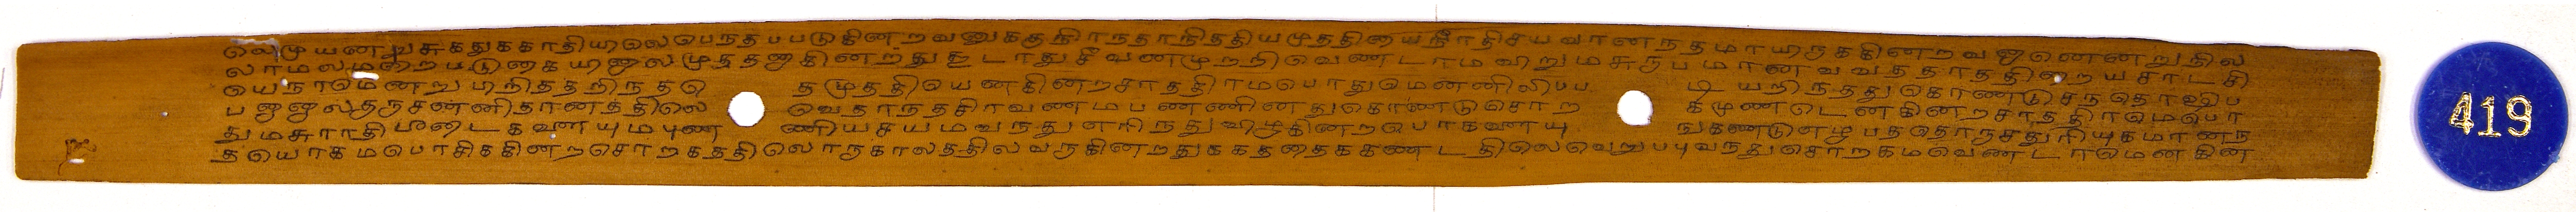 லெமுயனறுசுகதுககாதியாலெபெநதபபடுகின றவனுககுநிராநதாநிததியமுததியைநீரதிசயவானநதமாயிருககினறவனெனெனறுதில
லாமலமறைபடுகையாலமுததனுகினறதுகூடாதுசீவணமுறநிவெணடாமவிறுமசுருபமானவவததாததினறயசாடசி
யெநாமெனறு பிநிததநிநதடு தமுததியெனகினறசாததிரமபொதுமெனனிலிபப டி யறிநததுகொணடுசநதொஷிப
பனுனுலகுருசனனிதானததிலெ வெதாநதசிரவணமபணணினதுகொணடுசொற கமுணடெனகினறசாததிரமெபொ
துமசுராதிபடைகவணயுமபுண ணியசயமவநதுஎரிநதுவிழுகினறபொகவணயு ஙகணடுஎழுபததொருசதுரியுகமானந
தயொகமபொசிககினறசொறகததிலொருகாலததிலவருகினறதுககததைககணட திலெவெறுபபுவநதுசொறகமவெணடாமெனகின
419